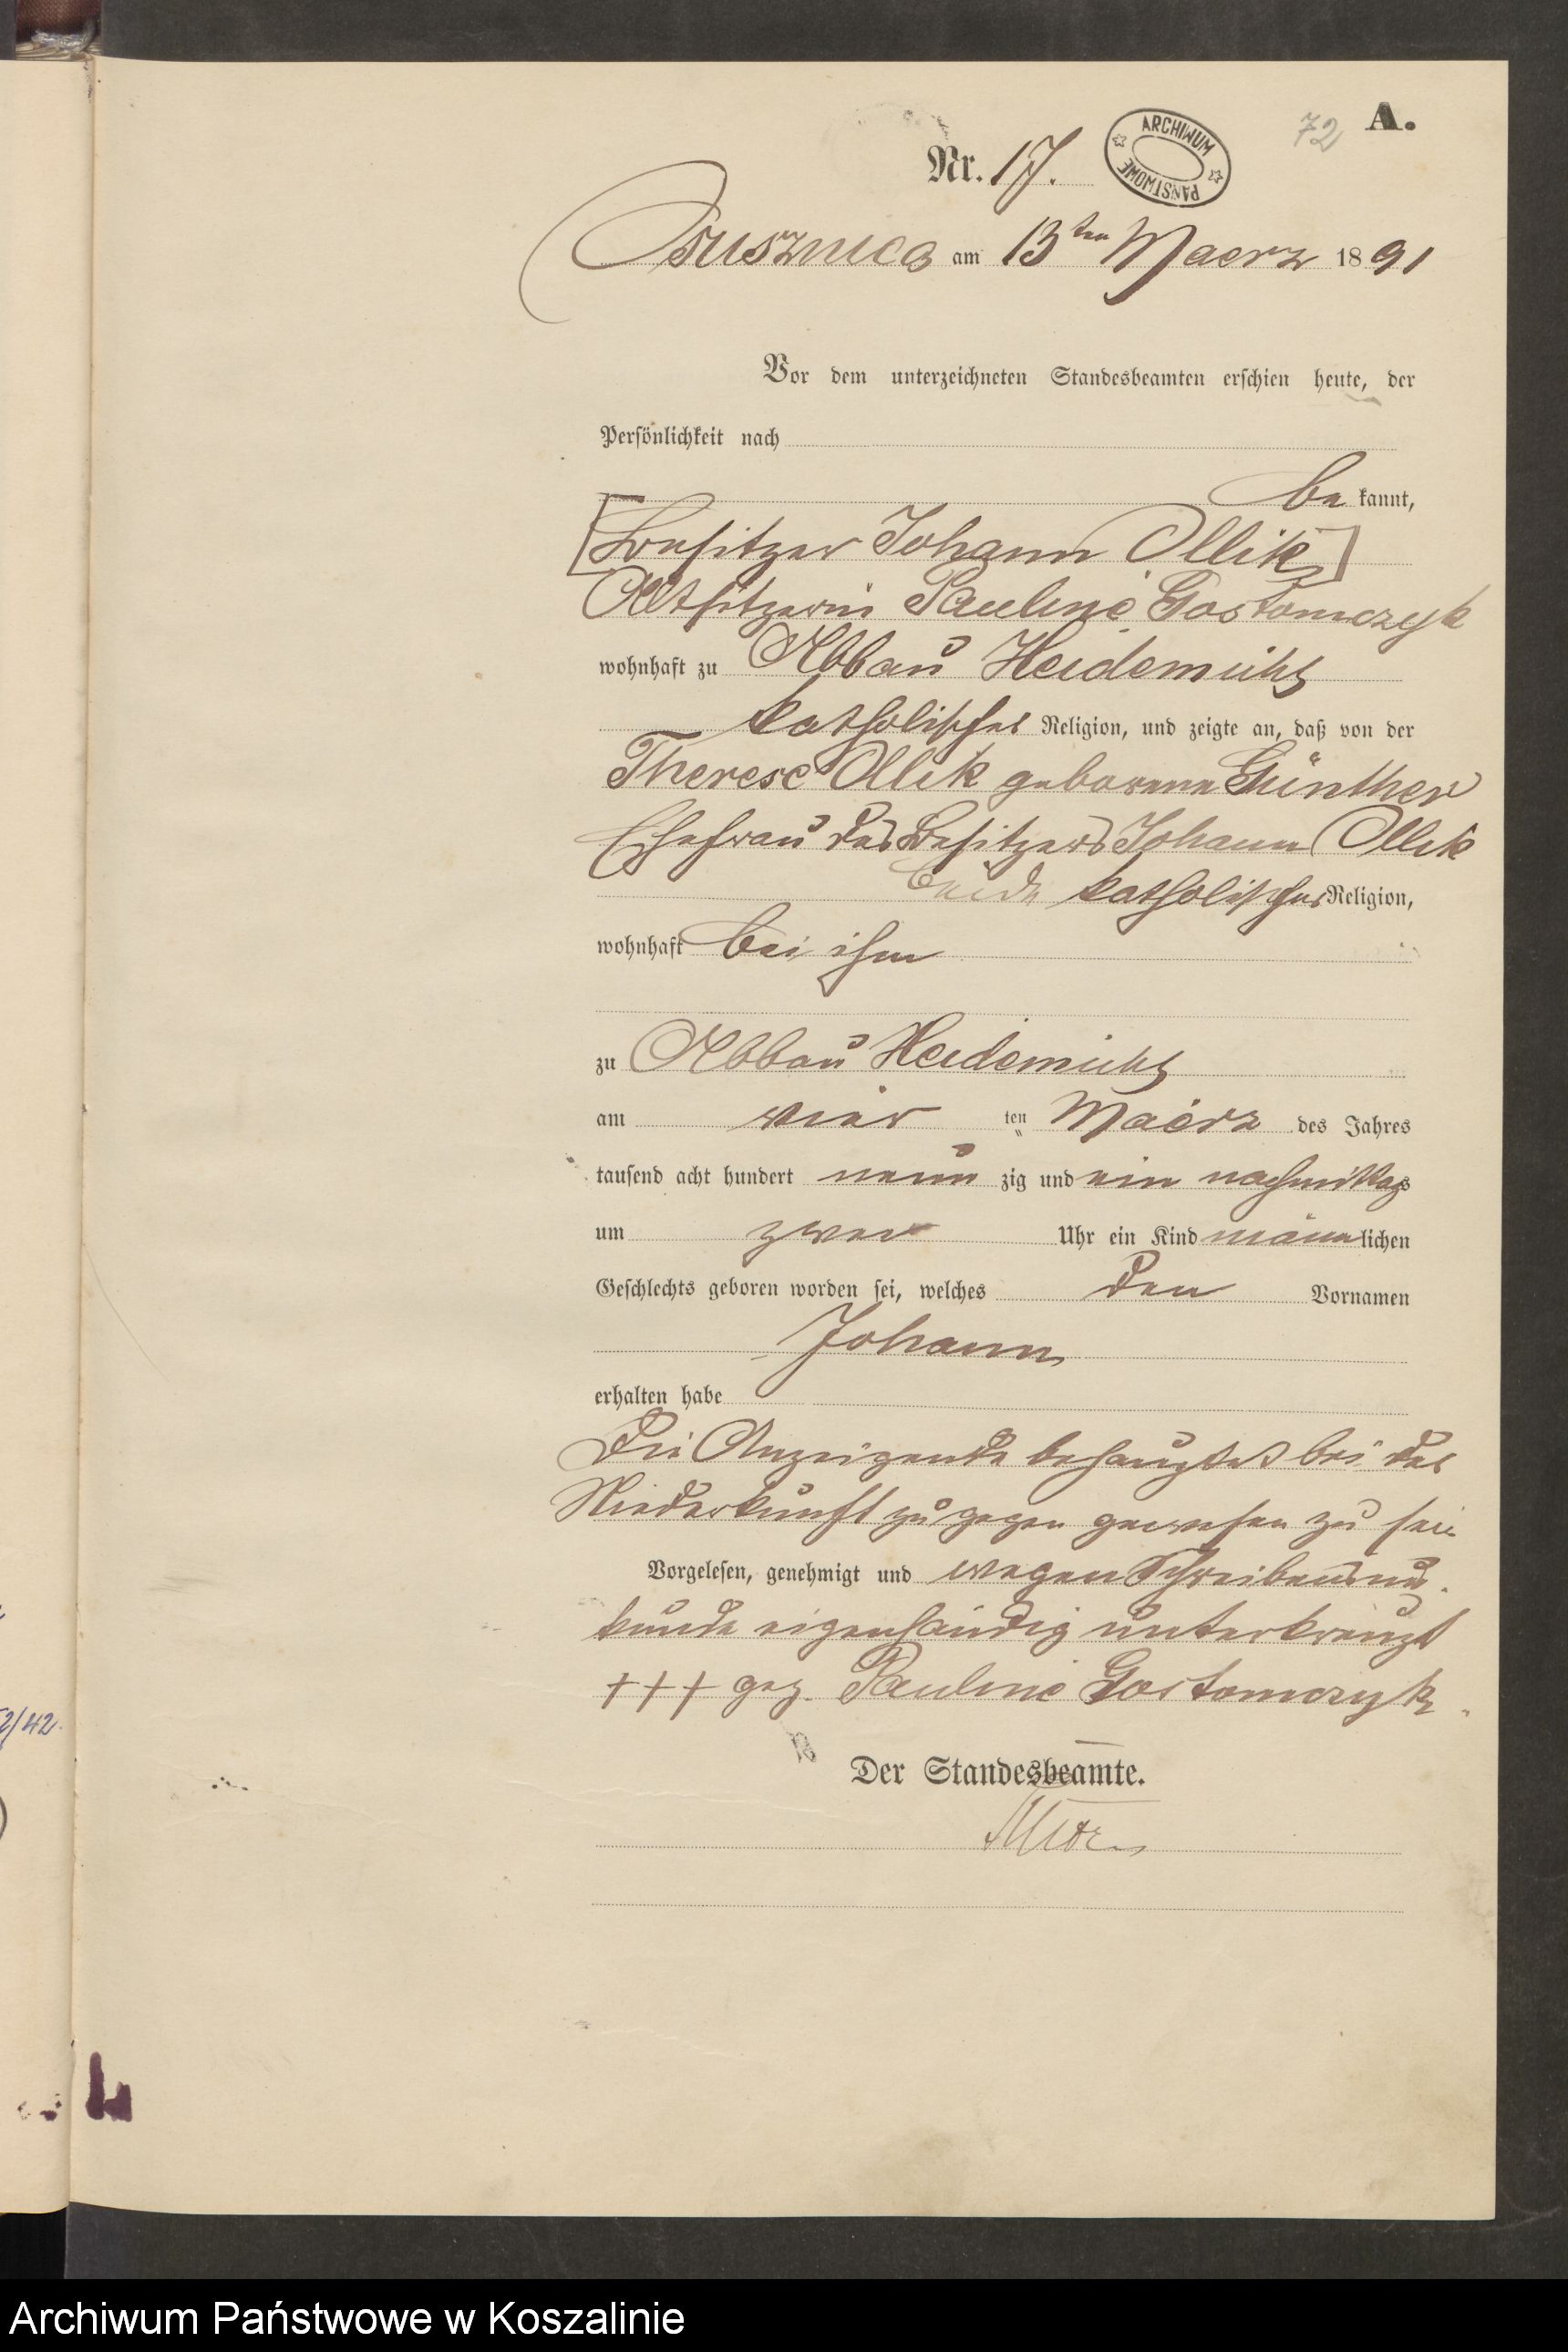 72 A.
Nr. 17.
ARCHIWUM PAŃSTWOWE
Osusznica am 13ten Maerz 1891
Vor dem unterzeichneten Standesbeamten erschien heute, der
Persönlichkeit nach
be kannt,
[Besitzer Johann Ollik]
Altsitzerin Pauline Gostomczyk
wohnhaft zu Abbau Heidemühl
katholischer Religion, und zeigte an, daß von der
Therese Ollik geborene Günther
Ehefrau des Besitzers Johann Ollik
beide katholischer Religion,
wohnhaft bei ihm
zu Abbau Heidemühl
am vier ten Maerz des Jahres
tausend acht hundert neun zig und ein nachmittags
um zwei Uhr ein Kind männlichen
Geschlechts geboren worden sei, welches den Vornamen
Johann
erhalten habe
Die Anzeigende behauptet bei der
Niederkunft zu gegen gewesen zu sein
Vorgelesen, genehmigt und wegen Schreibensun-
kunde eigenhändig unterkreuzt
+++ gez. Pauline Gostomczyk.
Der Standesbeamte.
2/42.
Archiwum Państwowe w Koszalinie